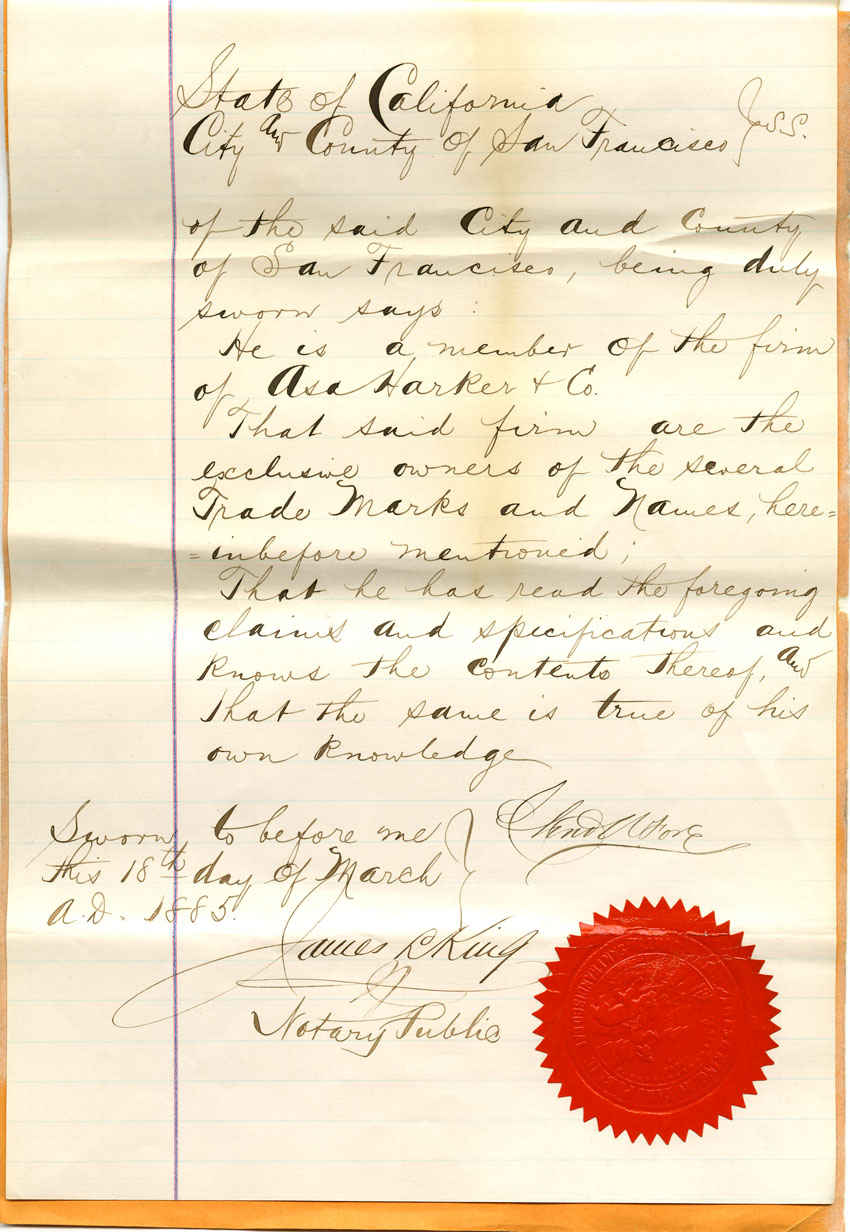 State of California
City and County of San Francisco } S.S.
of the said City and County
of San Francisco, being duly
sworn says:
He is a member of the firm
of Asa Harker & Co.
That said firm are the
exclusive owners of the several
Trade Marks and Names, here=
=inbefore mentioned;
That he has read the foregoing
claims and specifications and
knows the contents thereof, and
that the same is true of his
own knowledge
Sworn to before me
this 18th day of March
A.D. 1885.
James L King
Notary Public